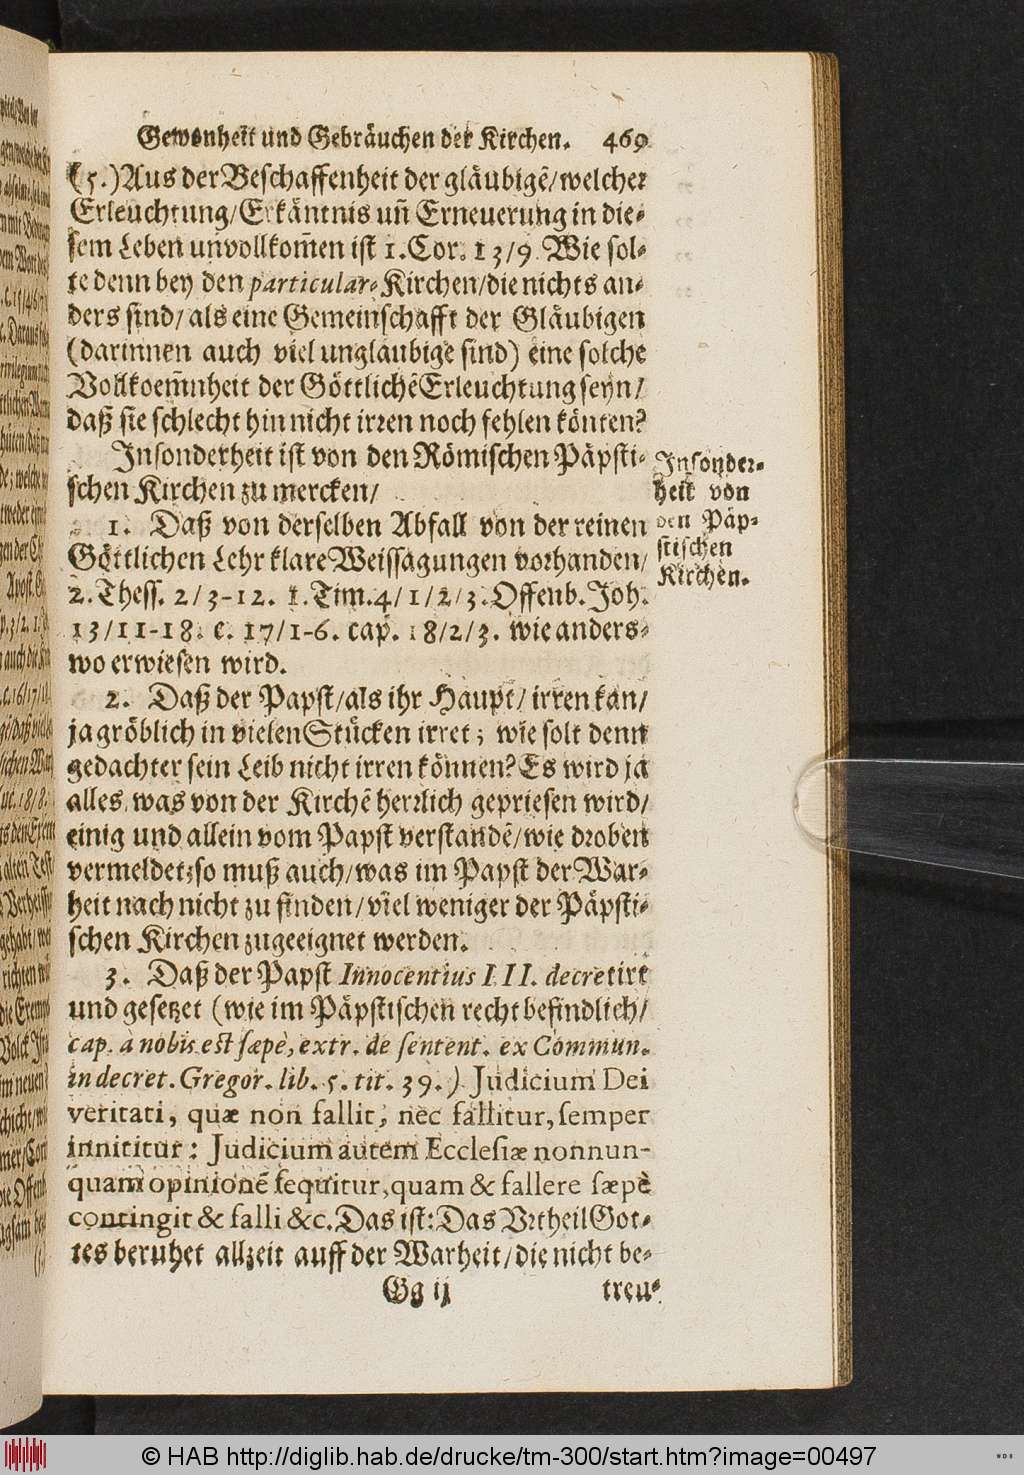 Gewonheit und Gebräuchen der Kirchen. 469
(5.) Aus der Beschaffenheit der gläubigẽ/welcher
Erleuchtung/Erkäntnis uñ Erneuerung in die-
sem Leben unvollkom̃en ist 1. Cor. 13/9. Wie sol-
te denn bey den particular-Kirchen/die nichts an-
ders sind/als eine Gemeinschafft der Gläubigen
(darinnen auch viel unglaubige sind) eine solche
Vollkoem̃nheit der Göttlichẽ Erleuchtung seyn/
daß sie schlecht hin nicht irren noch fehlen könten?
Insonderheit ist von den Römischen Päpsti-
schen Kirchen zu mercken/
Insonder-
heit von
den Päp-
stischen
Kirchen.
1. Daß von derselben Abfall von der reinen
Göttlichen Lehr klare Weissagungen vorhanden/
2. Thess. 2/3-12. 1. Tim. 4/1/2/3. Offenb. Joh.
13/11-18. c. 17/1-6. cap. 18/2/3. wie anders-
wo erwiesen wird.
2. Daß der Papst/als ihr Haupt/irren kan/
ja gröblich in vielen Stücken irret; wie solt denn
gedachter sein Leib nicht irren können? Es wird ja
alles, was von der Kirchẽ herrlich gepriesen wird/
einig und allein vom Papst verstandẽ/wie droben
vermeldet; so muß auch/was im Papst der War-
heit nach nicht zu finden/viel weniger der Päpsti-
schen Kirchen zugeeignet werden.
3. Daß der Papst Innocentius III. decretirt
und gesetzet (wie im Päpstischen recht befindlich/
cap. à nobis est sæpè, extr. de sentent. ex Commun.
in decret. Gregor. lib. 5. tit. 39.) Judicium Dei
veritati, quæ non fallit, nec fallitur, semper
innititur: Judicium autem Ecclesiæ nonnun-
quam opinionẽ sequitur, quam & fallere sæpè
contingit & falli &c. Das ist: Das Vrtheil Got-
tes beruhet allzeit auff der Warheit/die nicht be-
Gg ij treu-
© HAB http://diglib.hab.de/drucke/tm-300/start.htm?image=00497